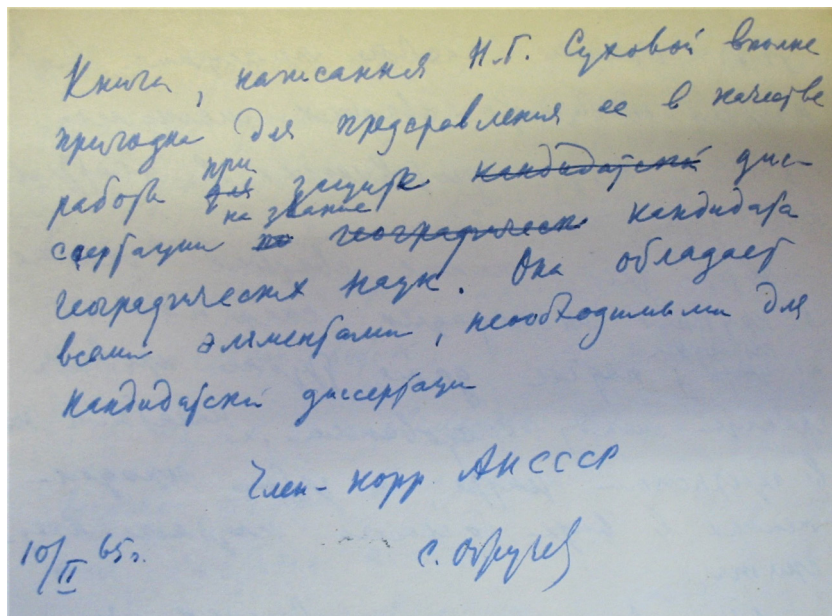 Книга, написанная Н.Г. Суховой вполне
пригодна для представления ее в качестве
работы для при защите кандидатской дис-
сертации по на звание географических кандидата
географических наук. Она обладает
всеми элементами, необходимыми для
кандидатской диссертации
Член-корр. АН СССР
10/II 65г.
С. Обручев